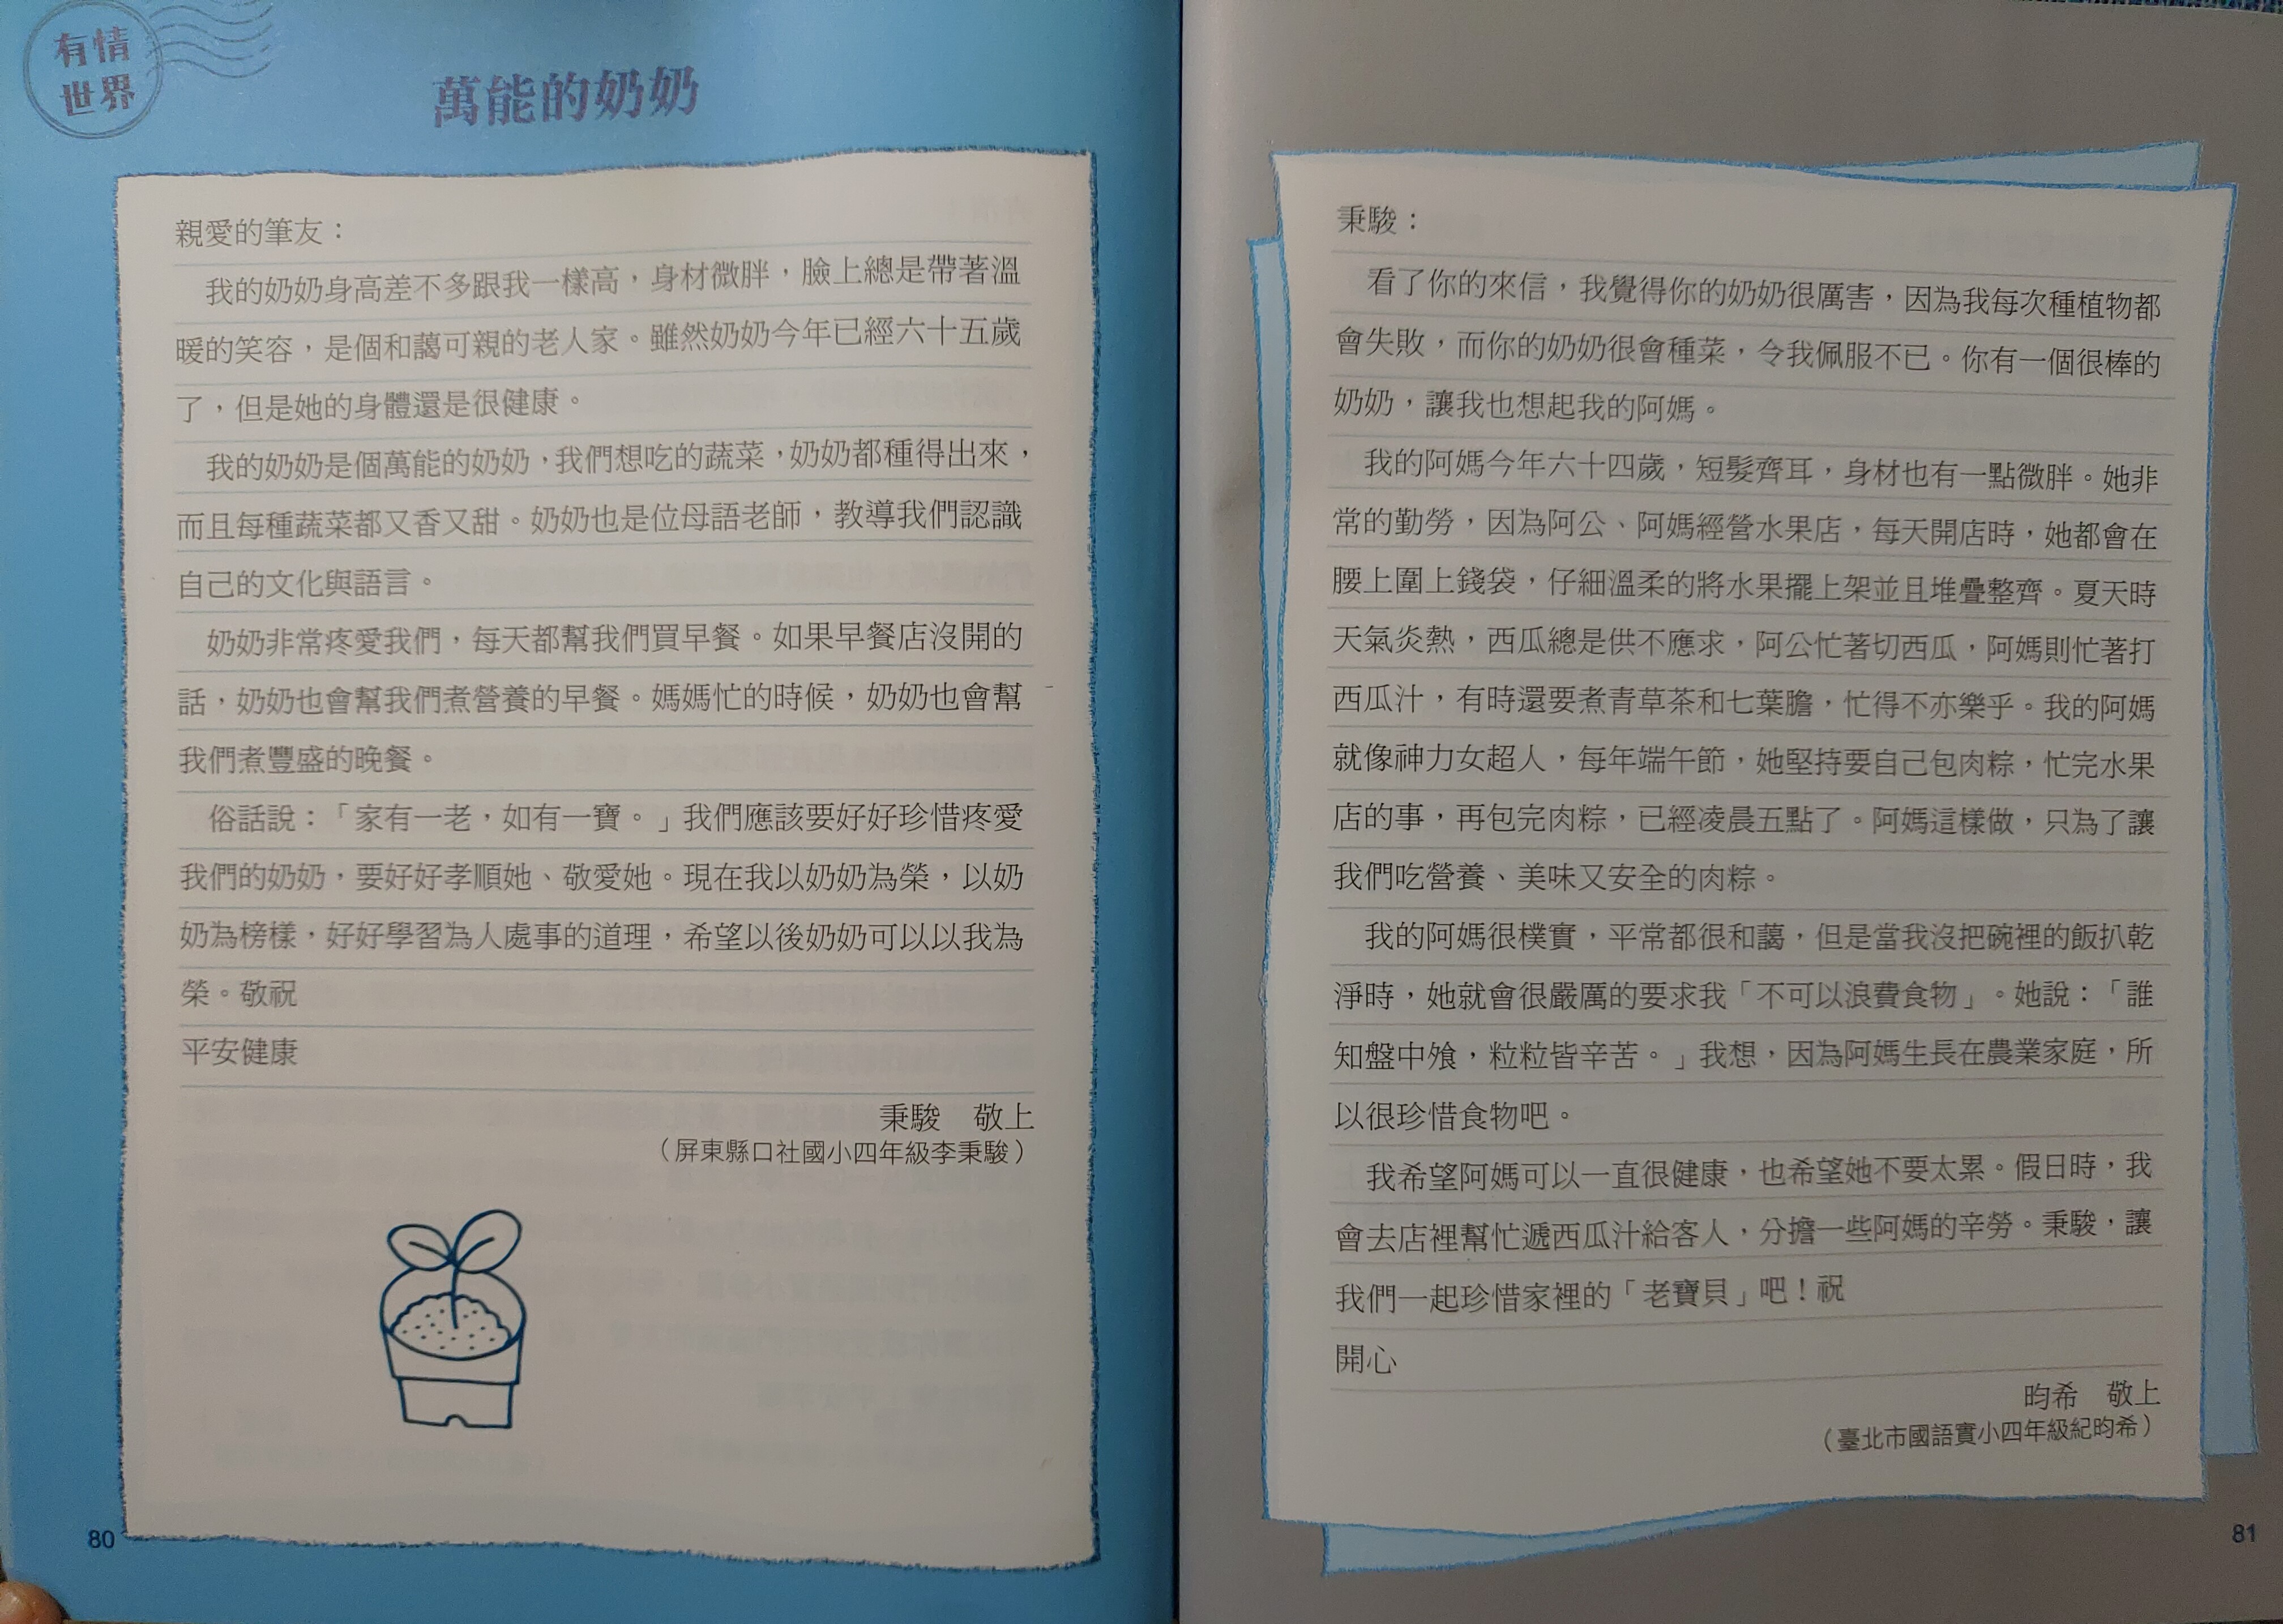 有情
世界
萬能的奶奶
親愛的筆友：
我的奶奶身高差不多跟我一樣高，身材微胖，臉上總是帶著溫
暖的笑容，是個和藹可親的老人家。雖然奶奶今年已經六十五歲
了，但是她的身體還是很健康。
我的奶奶是個萬能的奶奶，我們想吃的蔬菜，奶奶都種得出來，
而且每種蔬菜都又香又甜。奶奶也是位母語老師，教導我們認識
自己的文化與語言。
奶奶非常疼愛我們，每天都幫我們買早餐。如果早餐店沒開的
話，奶奶也會幫我們煮營養的早餐。媽媽忙的時候，奶奶也會幫
我們煮豐盛的晚餐。
俗話說：「家有一老，如有一寶。」我們應該要好好珍惜疼愛
我們的奶奶，要好好孝順她、敬愛她。現在我以奶奶為榮，以奶
奶為榜樣，好好學習為人處事的道理，希望以後奶奶可以以我為
榮。敬祝
平安健康
秉駿　敬上
（屏東縣口社國小四年級李秉駿）
80
秉駿：
看了你的來信，我覺得你的奶奶很厲害，因為我每次種植物都
會失敗，而你的奶奶很會種菜，令我佩服不已。你有一個很棒的
奶奶，讓我也想起我的阿媽。
我的阿媽今年六十四歲，短髮齊耳，身材也有一點微胖。她非
常的勤勞，因為阿公、阿媽經營水果店，每天開店時，她都會在
腰上圍上錢袋，仔細溫柔的將水果擺上架並且堆疊整齊。夏天時
天氣炎熱，西瓜總是供不應求，阿公忙著切西瓜，阿媽則忙著打
西瓜汁，有時還要煮青草茶和七葉膽，忙得不亦樂乎。我的阿媽
就像神力女超人，每年端午節，她堅持要自己包肉粽，忙完水果
店的事，再包完肉粽，已經凌晨五點了。阿媽這樣做，只為了讓
我們吃營養、美味又安全的肉粽。
我的阿媽很樸實，平常都很和藹，但是當我沒把碗裡的飯扒乾
淨時，她就會很嚴厲的要求我「不可以浪費食物」。她說：「誰
知盤中飧，粒粒皆辛苦。」我想，因為阿媽生長在農業家庭，所
以很珍惜食物吧。
我希望阿媽可以一直很健康，也希望她不要太累。假日時，我
會去店裡幫忙遞西瓜汁給客人，分擔一些阿媽的辛勞。秉駿，讓
我們一起珍惜家裡的「老寶貝」吧！祝
開心
昀希　敬上
（臺北市國語實小四年級紀昀希）
81